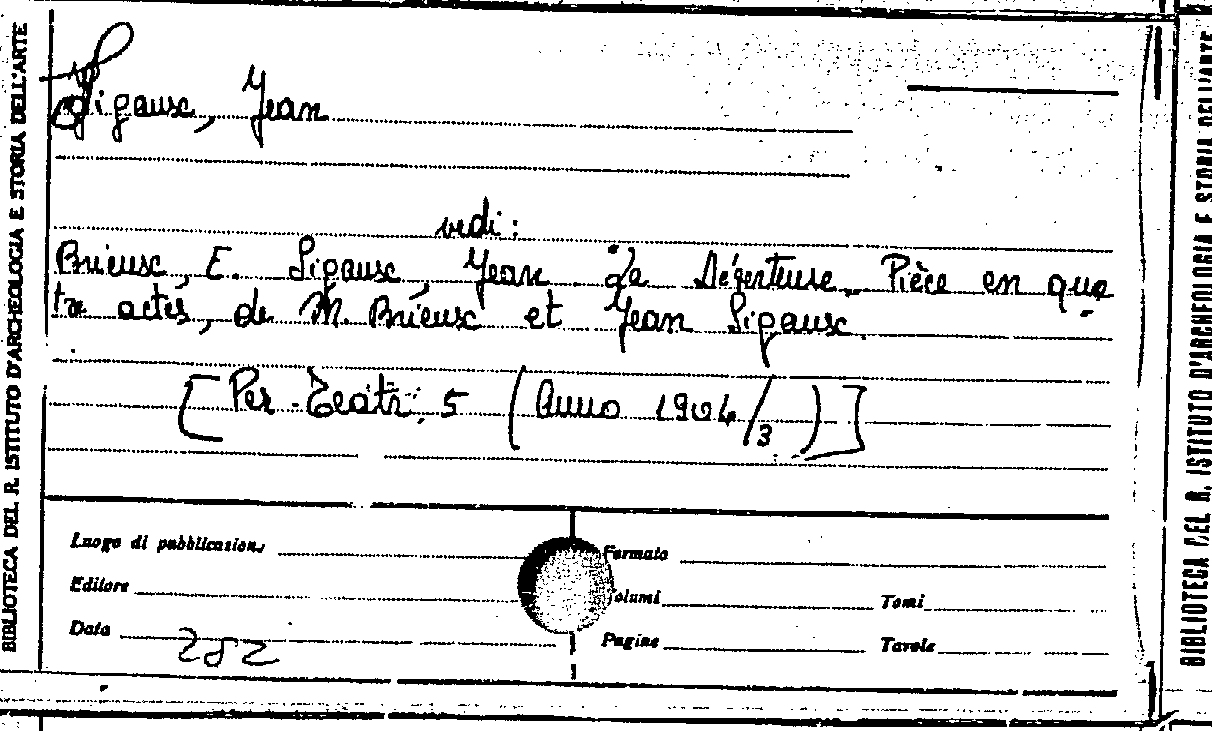 BIBLIOTECA DEL R. ISTITUTO D'ARCHEOLOGIA E STORIA DELL'ARTE
Sigausc, Jean
vedi:
Brieusc, E. Sigausc, Jean de Déserteuse. Pièce en qua
tre actes, de M. Brieusc et Jean Sigausc.
[Per. Teatr. 5 (Anno 1904/3)]
Luogo di pubblicazione
Formato
Editore
Volumi
Tomi
Data 282
Pagine
Tavole
BIBLIOTECA DEL R. ISTITUTO D'ARCHEOLOGIA E STORIA DELL'ARTE